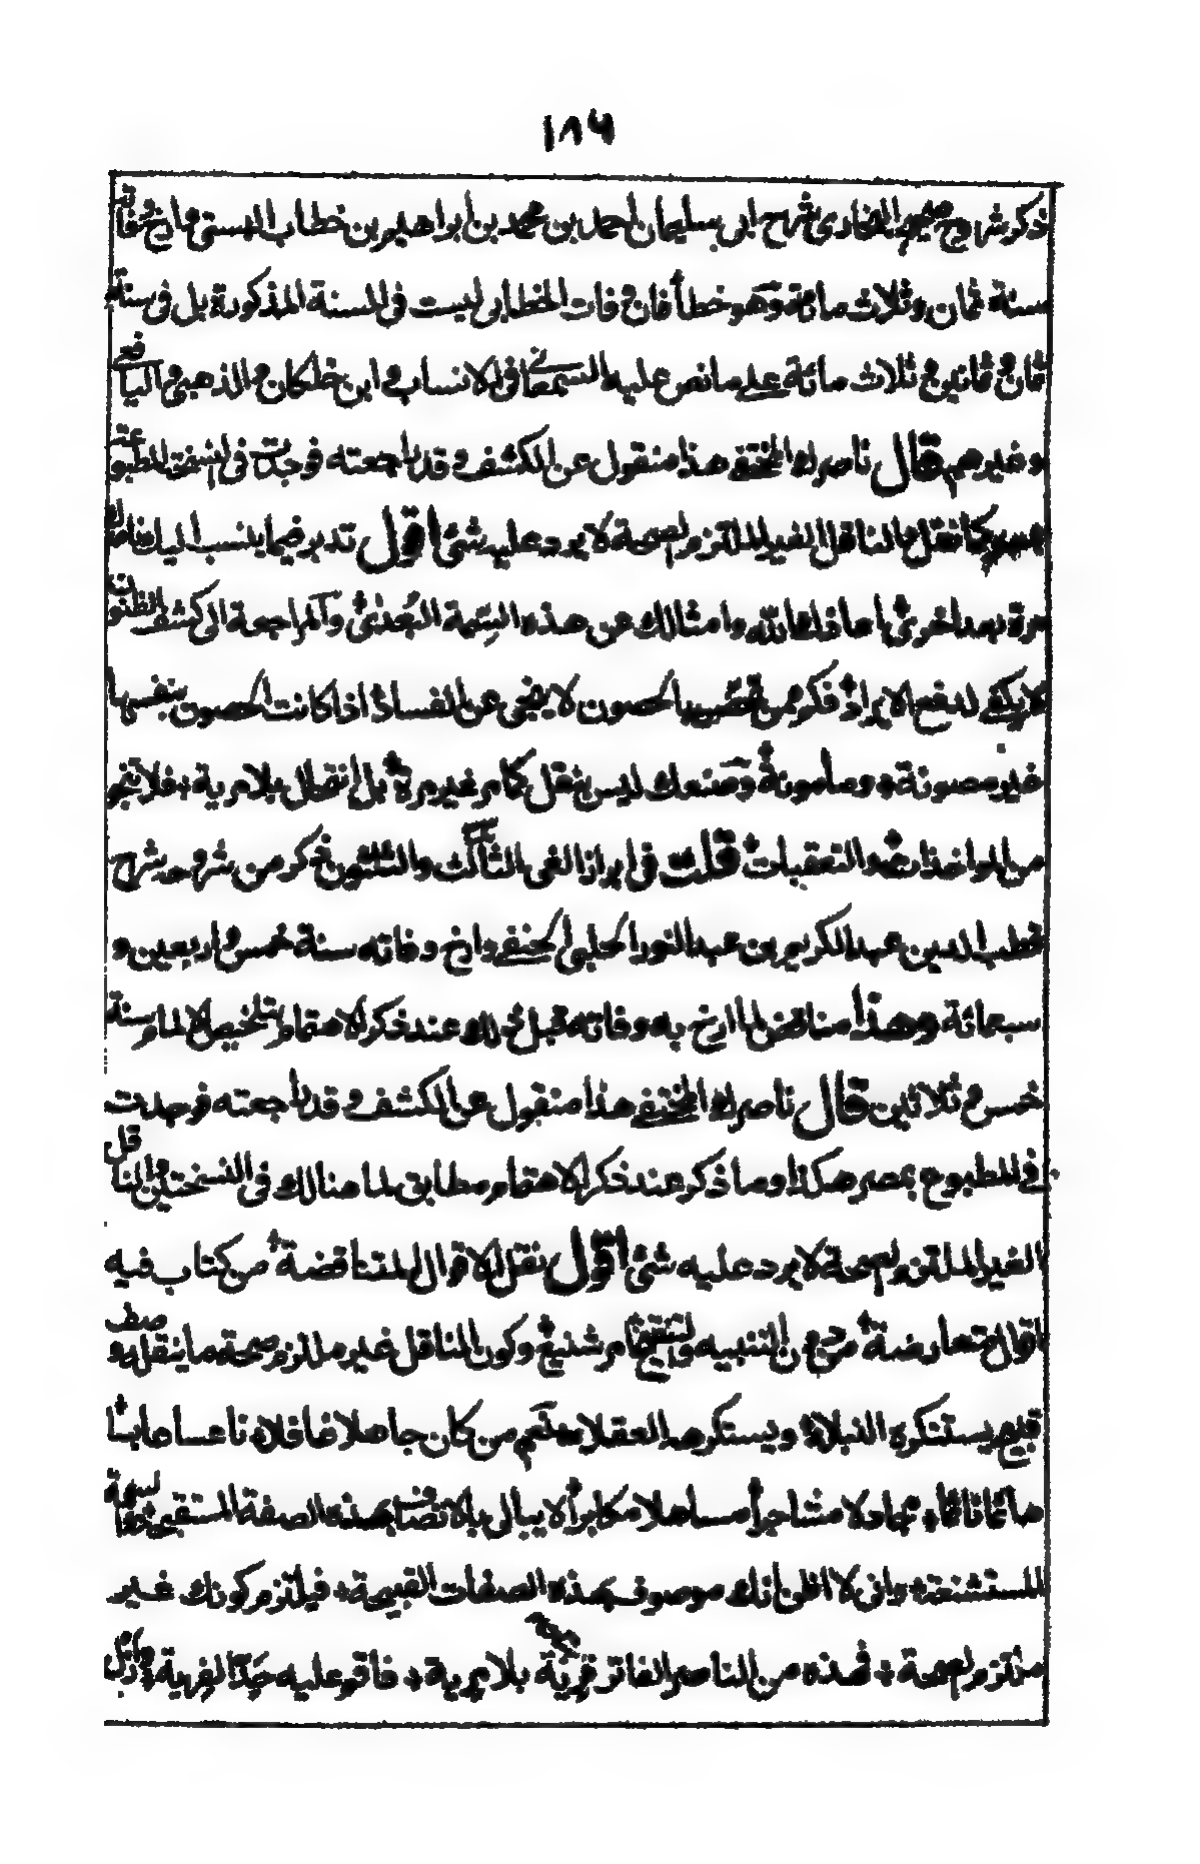 ١٨٦
ذكر شروح صحيح البخارى شرح ابى سليمان احمد بن محمد بن ابراهيم بن خطاب البستى وارخ وفاته
سنة ثمان وثلاث مائة وهو خطأ فان وفات الخطابى ليست فى السنة المذكورة بل فى سنة
ثمان وثمانين وثلاث مائة على ما نص عليه السمعانى فى الانساب وابن خلكان والذهبى واليافعى
وغيرهم قال ناصرك المختفى هذا منقول عن الكشف وقد راجعته فوجدت فى النسخة المطبوعة
بمصر كما نقل والناقل الغير الملتزم لصحة لا يرد عليه شئ اقول تدبر فيما ينسب اليك ناصرك
مرة بعد اخرى اعاذنا الله وامثالك عن هذه السمة البعدى والمراجعة الى كشف الظنون
لا يكفى لدفع الايراد فكم من تحصن بالحصون لا ينجى عن الفساد اذا كانت الحصون بنفسها
غير مصونة ومأمونة وصنعك ليس بنقل كامر غير مرة بل انتحال بلا مرية فلا تنج
من المواخذات والتعقبات قلت فى ابراز الغى الثالث والثلثون ذكر من شروحه شرح
قطب الدين عبد الكريم بن عبد النور الحلبى الحنفى وارخ وفاته سنة خمس واربعين و
سبعمائة وهذا مناقض لما ارخ به وفاته قبل ذلك عند ذكر الاهتمام بتلخيص الالمام سنة
خمس وثلاثين قال ناصرك المختفى هذا منقول عن الكشف وقد راجعته فوجدت
فى المطبوع بمصر هكذا وما ذكر عند ذكر الاهتمام مطابق لما هنالك فى النسختين والناقل
الغير الملتزم لصحة لا يرد عليه شئ اقول نقل الاقوال المتناقضة من كتاب فيه
اقوال متعارضة من دون التنبيه والتنقيح امر شنيع وكون الناقل غير ملتزم صحة ما ينقل وصف
قبيح يستنكره النبلاء ويستكرهه العقلاء نعم من كان جاهلا غافلا ناعسا عابثا
هائما نائما مجادلا مشاجرا مساهلا مكابرا لا يبالى بالاتصاف بهذه الصفة المستقبحة
المستشنعة وانى لا اظن انك موصوف بهذه الصفات القبيحة فيلتزم كونك غير
ملتزم لصحة فهذه من الناصر الفاتر فرية بلا مرية فاقم عليه حد الفرية